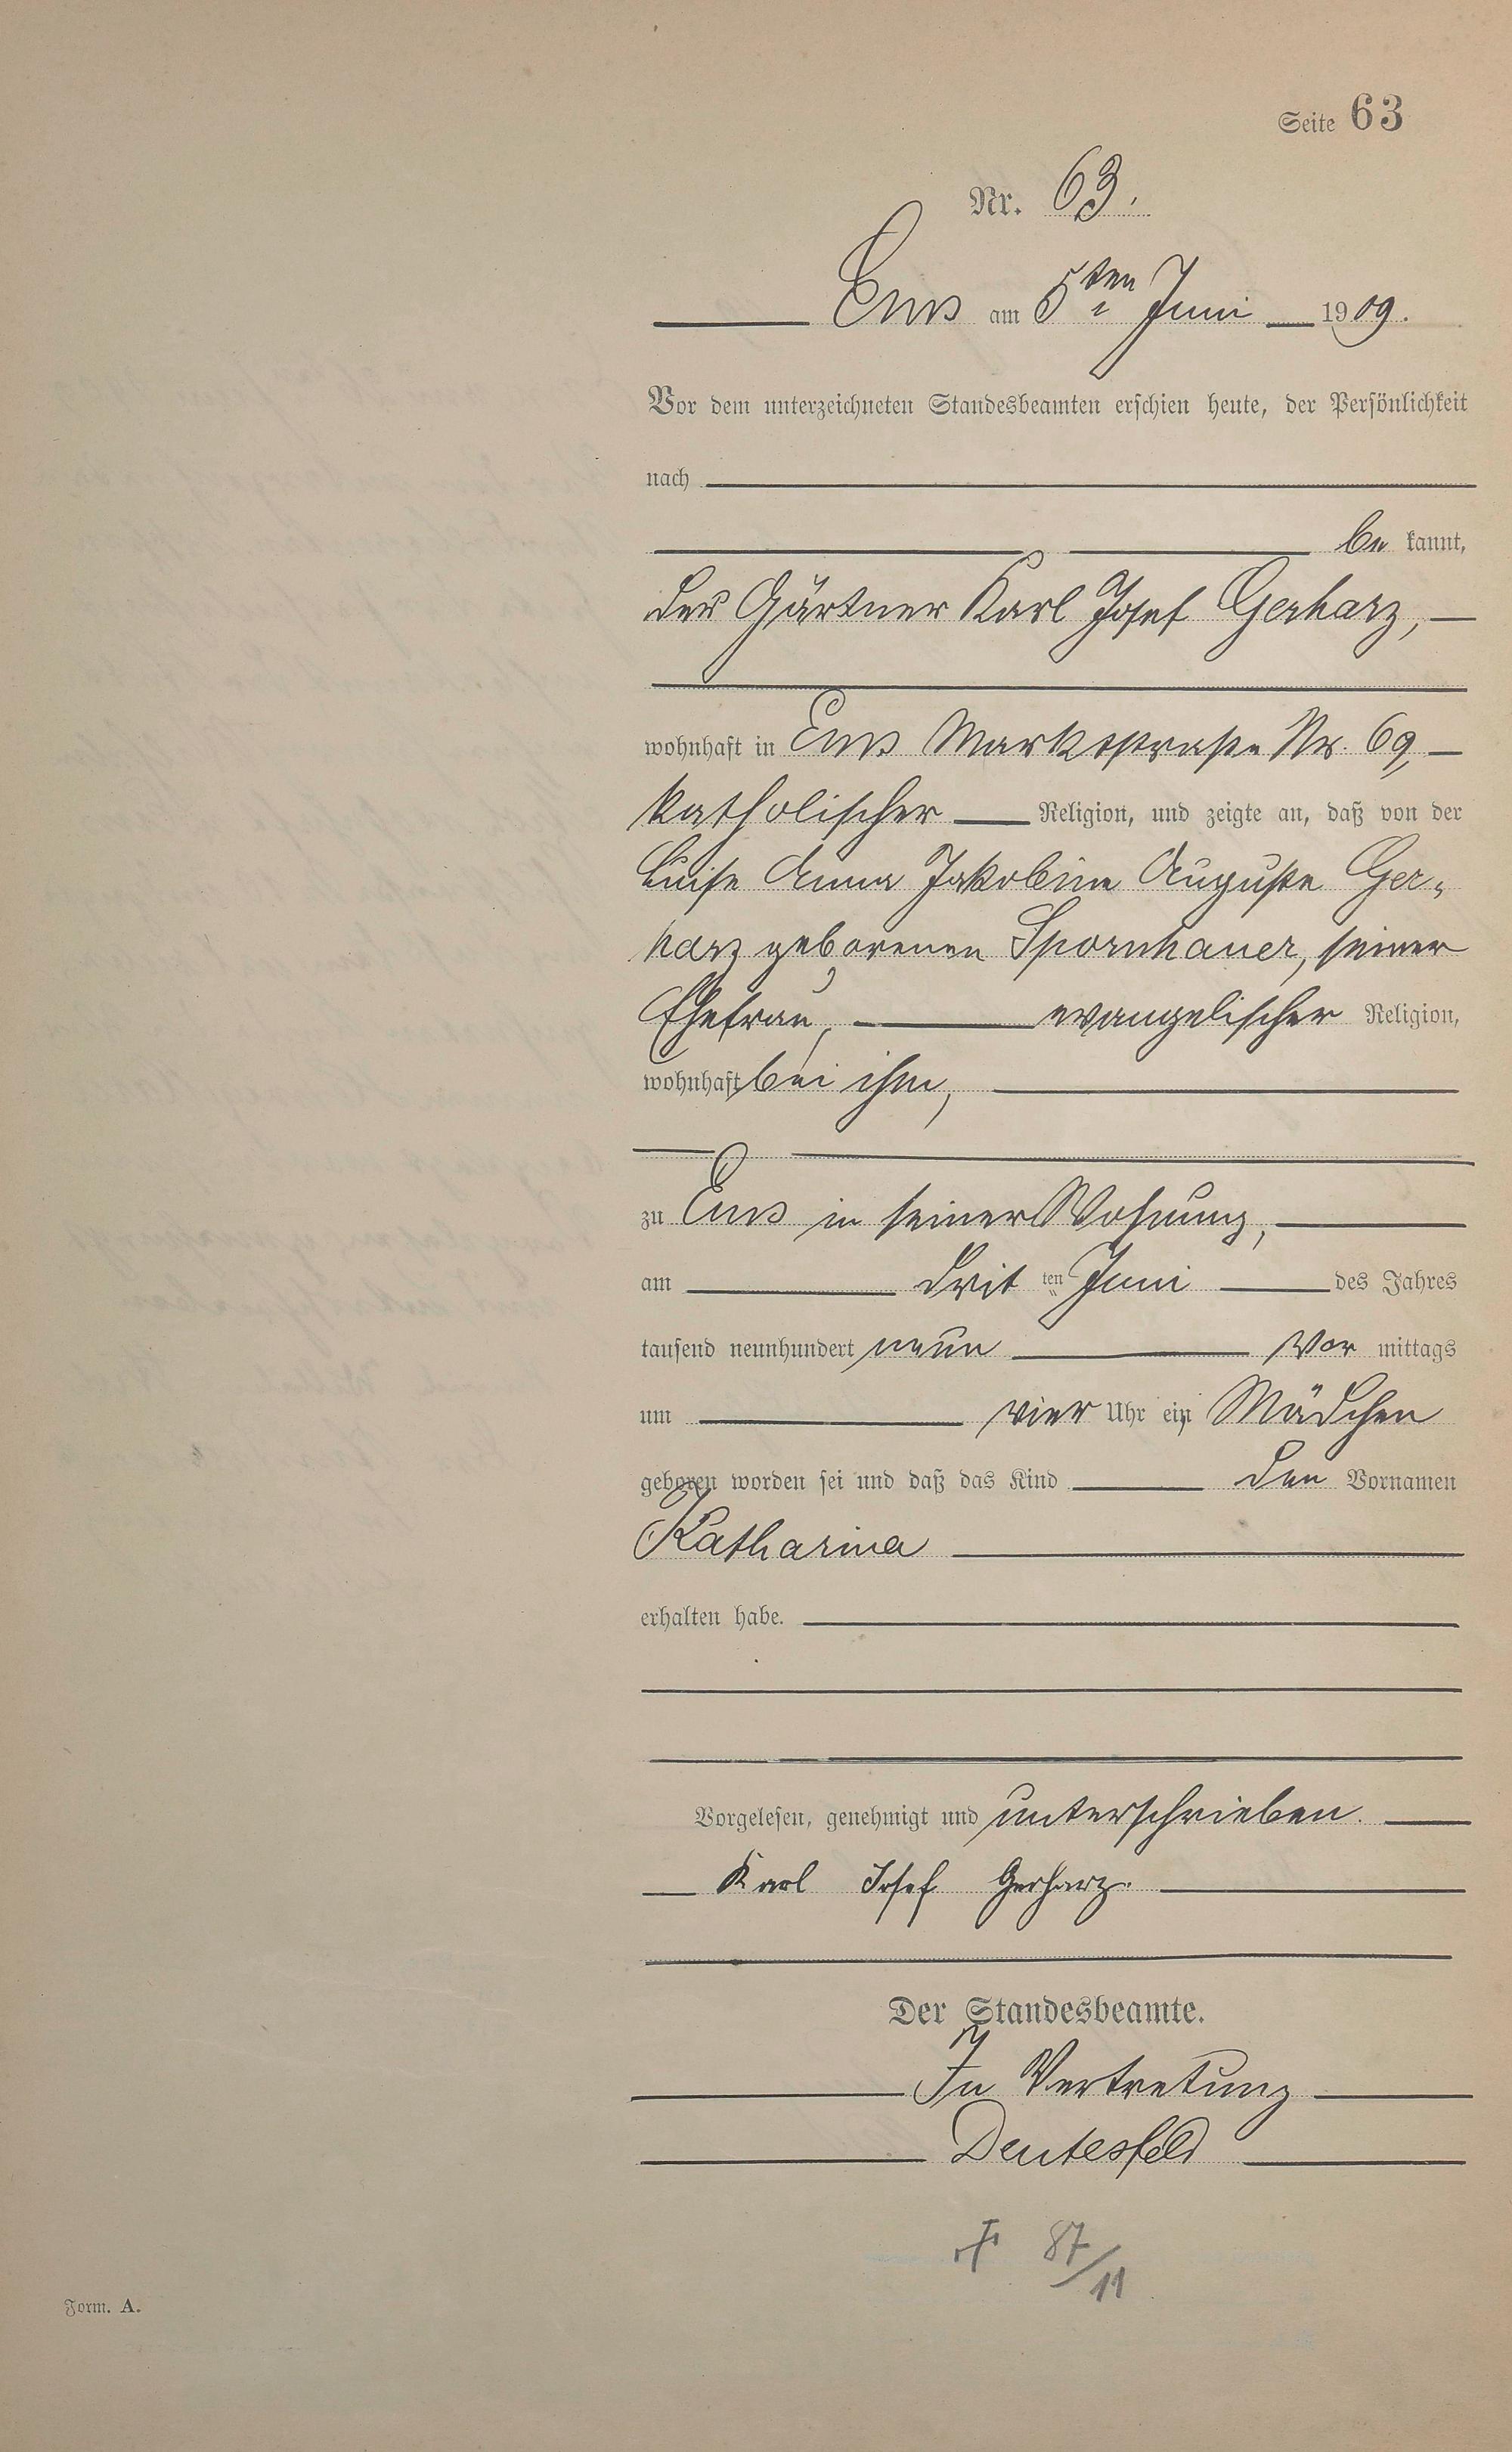 Seite 63
Nr. 63.
Ems am 5ten Juni 1909.
Vor dem unterzeichneten Standesbeamten erschien heute, der Persönlichkeit
nach
be kannt,
der Gärtner Karl Josef Gerharz,
wohnhaft in Ems Marktstraße Nr. 69,
katholischer Religion, und zeigte an, daß von der
Luise Anna Jakobine Auguste Ger-
harz geborenen Spornhauer, seiner
Ehefrau, evangelischer Religion,
wohnhaft bei ihm,
zu Ems in seiner Wohnung,
am drit ten Juni des Jahres
tausend neunhundert neun Vor mittags
um vier Uhr ein Mädchen
geboren worden sei und daß das Kind den Vornamen
Katharina
erhalten habe.
Vorgelesen, genehmigt und unterschrieben.
Karl Josef Gerharz.
Der Standesbeamte.
In Vertretung
Deutesfeld
87/11
Form. A.